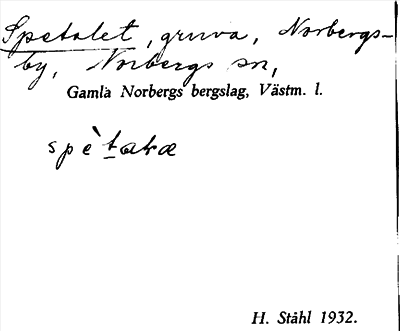 Spetalet, gruva, Norbergs-
by, Norbergs sn,
Gamla Norbergs bergslag, Västm. l.
spètalæ
H. Ståhl 1932.